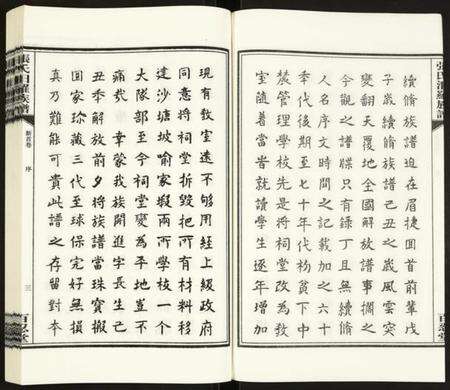 續脩族譜迫在眉捷回首前輩戊
子歲續脩族譜己丑之歲風雲突
變翻天覆地全國解放譜事擱之
今觀之譜牒只有錄丁且無續脩
人名序文時間之記載加之六十
年代後期至七十年代枌貧下中
農管理學校先是將祠堂改為教
室隨着當时就讀學生逐年增加
現有教室遠不够用經上級政府
同意將祠堂拆毀把所有材料移
建沙塘坡喻家塅兩所學校一个
大隊部至今祠堂變為平地豈不
痛哉 幸蒙我族開進字長生己
丑季解放前夕將族譜當珠寶搬
回家珍藏三代至球保完好無損
真乃難能可貴此譜之存留對本
張氏湘羅族譜
新首卷 序
三
百忍堂